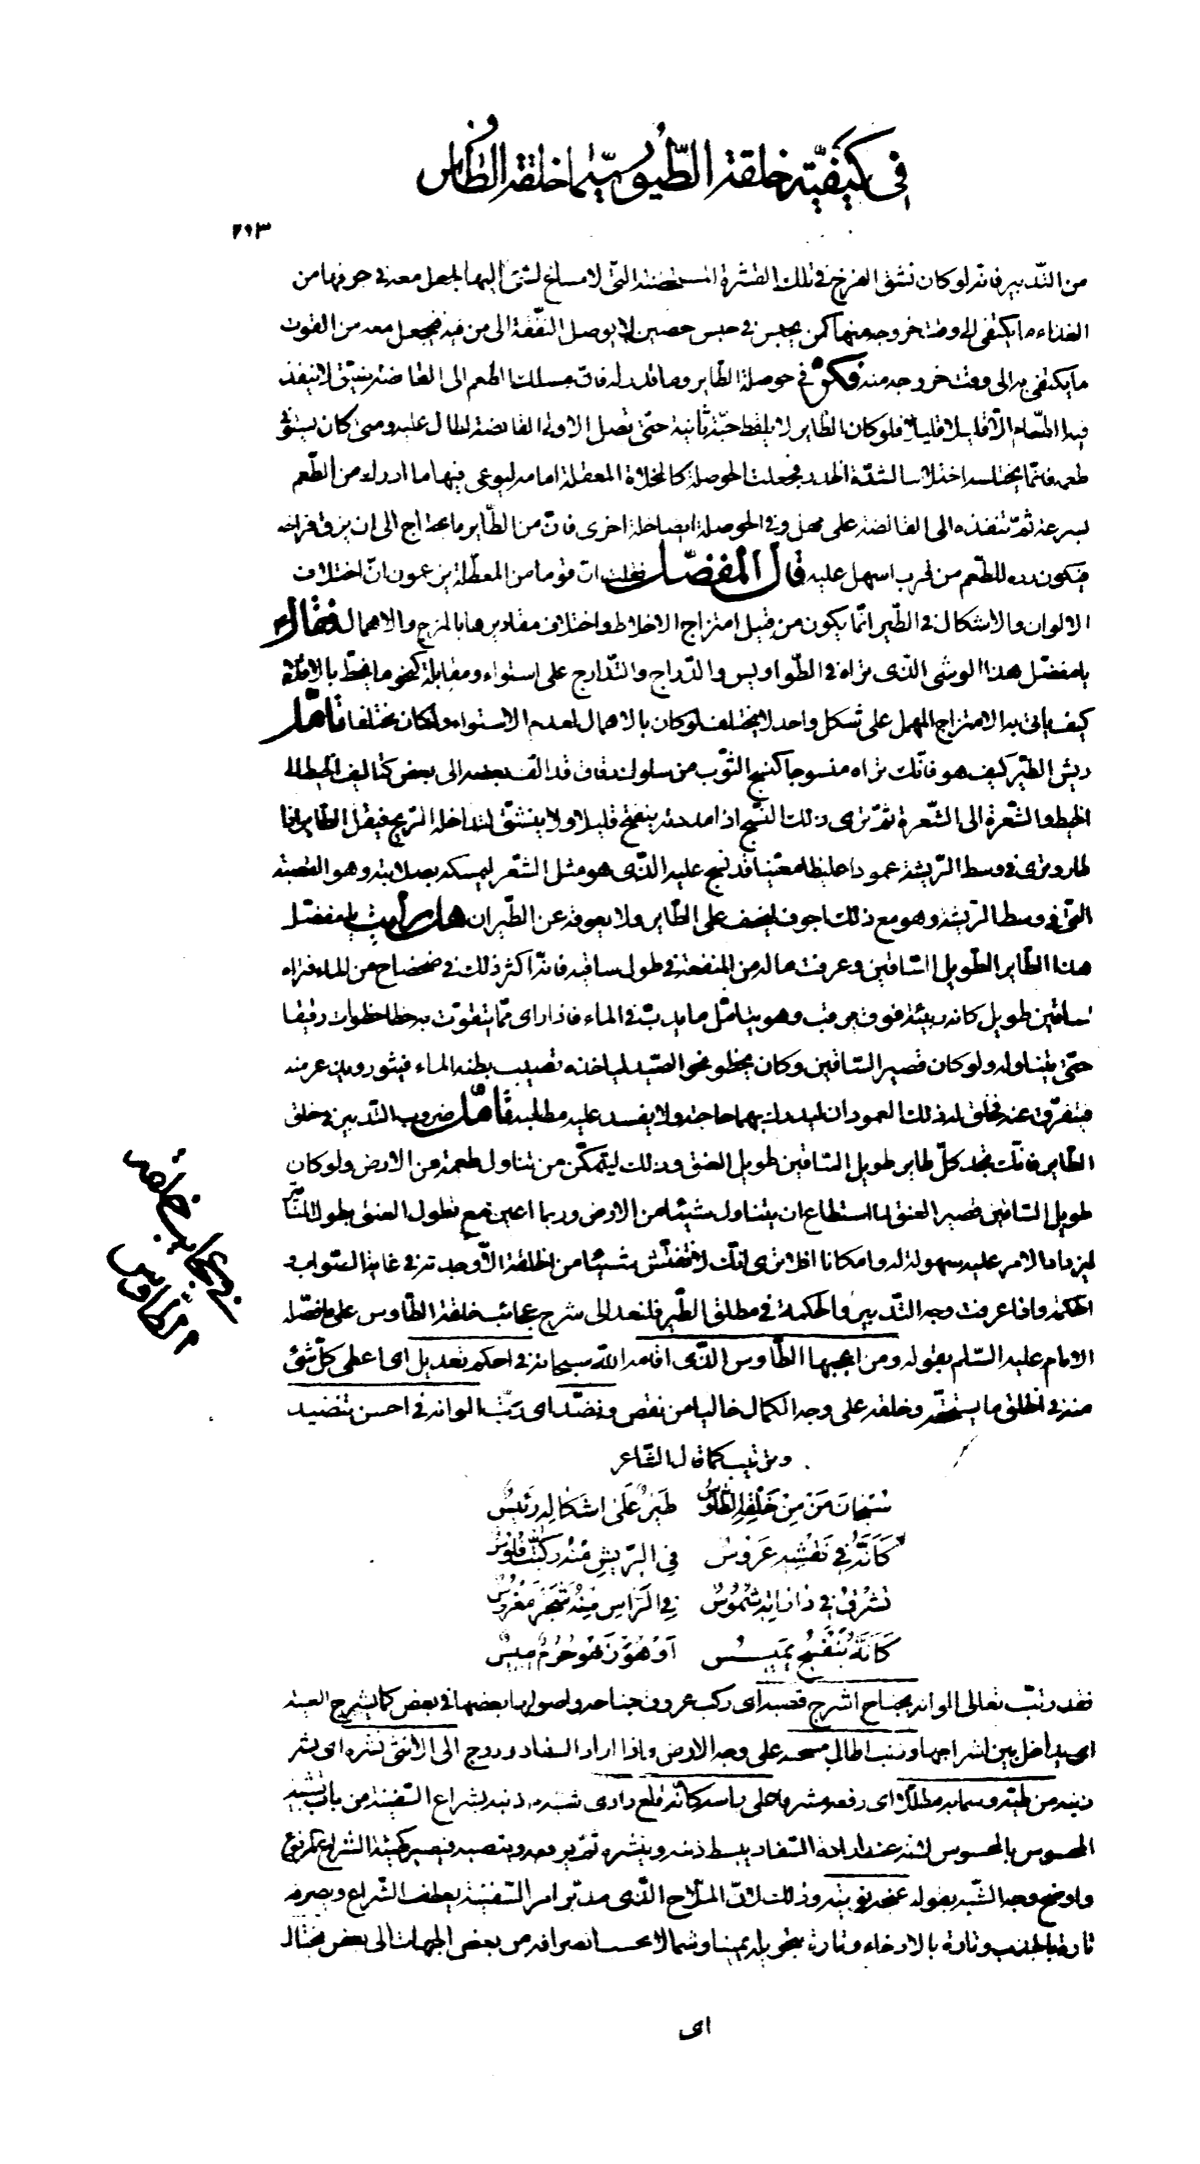 في كيفيّة خلقة الطّيور سيّما خلقة الطاوس
٢٩٣
من التّدبير فانه لو كان نشق الفرخ في تلك القشرة المستحضنة التي لا مساغ لشئ اليها لجعل معه في جوفها من
الغذاء ما يكتفى الى وقت خروجه منها كمن يحبس في حبس حصين لا يوصل النّفقة الى من فيه فيجعل معه من القوت
ما يكتفى به الى وقت خروجه منه فكّر في حوصلة الطّاير وما قدر له فانّ مسلك الطعم الى القانصة ضيّق لا ينفذ
فيه الطّعام الّا قليلا قليلا فلو كان الطّاير لا يلقط حبّة ثانية حتّى تصل الاولى القانصة لطال عليه ومتى كان يستوفى
طعمه فانّما يختلسه اختلاسا لشدّة الحذر فجعلت الحوصلة كالمخلاة المعلقة امامه ليوعى فيها ما ادرك من الطّعم
بسرعة ثمّ تنفذه الى القانصة على مهل وفي الحوصلة ايضا خلة اخرى فانّ من الطّاير ما يحتاج الى ان يزق فراخه
فيكون رده للطّعم من قرب اسهل عليه قال المفضّل فقلت انّ قوما من المعطّلة يزعمون انّ اختلاف
الالوان والاشكال في الطّير انّما يكون من قبل امتزاج الاخلاط واختلاف مقاديرها بالمزج والاهمال فقال
يا مفضّل هذا الوشى الّذى تراه في الطّواويس والدّراج والتّدارج على استواء ومقابلة كنحو ما يخطّ بالاقلام
كيف ياتى به الامتزاج المهمل على شكل واحد لا يختلف لو كان بالاهمال لعدم الاستواء ولكان مختلفا تامّل
ريش الطّير كيف هو فانّك تراه منسوجا كنسج الثّوب من سلوك دقاق قد الّف بعضه الى بعض كتاليف الخيط الى
الخيط والشّعرة الى الشّعرة ثمّ ترى ذلك النّسج اذا مددته ينفتح قليلا ولا ينشقّ لتداخله الرّيح فيقل الطّاير اذا
طار وترى في وسط الرّيشة عمودا غليظا معيّنا قد نسج عليه الّذى هو مثل الشّعر ليمسكه بصلابته وهو القصبة
الّتى في وسط الرّيشة وهو مع ذلك اجوف ليخف على الطّاير ولا يعوقه عن الطّيران هل رأيت يا مفضّل
هذا الطّاير الطّويل السّاقين وعرفت ما له من المنفعة في طول ساقيه فانّه اكثر ذلك في ضحضاح من الماء فتراه
بساقين طويل كانه ربيئة فوق مرقب وهو يتامّل ما يدبّ في الماء فاذا راى ممّا يتقوّت به خطا خطوات رقيقا
حتّى يتناوله ولو كان قصير السّاقين وكان يخطو نحو الصّيد لياخذه تصيب بطنه الماء فيثور ويذعر منه
فيتفرّق عنه فخلق له ذلك العمودان ليدرك بهما حاجته ولا يفسد عليه مطلبه تامّل ضروب التّدبير في خلق
الطّاير فانّك تجد كلّ طاير طويل السّاقين طويل العنق وذلك ليتمكّن من تناول طعمه من الارض ولو كان
طويل السّاقين قصير العنق لما استطاع ان يتناول شيئا من الارض وربما اعين مع طول العنق بطول المناقير
ليزداد الامر عليه سهولة له وامكانا افلا ترى انّك لا تفتّش شيئا من الخلقة الّا وجدته في غاية الصّواب و
الحكمة واذا عرفت وجه التّدبير والحكمة في مطلق الطّير فلنعد الى شرح عجائب خلقة الطّاوس على ما فصّله
الامام عليه السّلم بقوله ومن اعجبها الطّاوس الّذى اقامه اللّه سبحانه في احكم تعديل اى اعطى كلّ شئ
منه في الخلق ما يستحقه وخلقه على وجه الكمال خاليا من نقص ونضّد اى رتّب الوانه في احسن تنضيد
وترتيب كما قال الشّاعر
سُبْحانَ مَنْ مِنْ خَلْقِهِ الطّاوُسُ طَيْرٌ عَلَى اشْكالِهِ رَئيسُ
كَاَنَّهُ في نَقْشِهِ عَرُوسٌ فِي الرّيشِ مِنْهُ رُكِّبَتْ فُلُوسُ
تُشْرِقُ في داراتِهِ شُمُوسُ فِي الرَّاسِ مِنْهُ شَجَرٌ مَغْرُوسُ
كَاَنَّهُ بَنَفْسَجٌ يَميسُ اَوْ هُوَ زَهْوُ حُرُمٍ يبيسُ
فقد رتّب تعالى الوانه بجناح اشرج قصبه اى ركب عروق جناحه واصولها بعضها في بعض كما يشرج العيبة
اى يداخل بين اشراجها وذنب اطال مسحبه على وجه الارض واذا اراد السفاد ودرج الى الانثى نشره اى نشر
ذنبه من طيّه وسما به مطلّا اى رفعه مشرفا على راسه كانّه قلع دارى شبه ذنبه بشراع السّفينة من باب تشبيه
المحسوس بالمحسوس لانه عند ارادة السّفاد يبسط ذنبه وينشره ثمّ يرفعه وينصبه فيصير كهيئة الشراع المرفوع
واوضح وجه الشّبه بقوله عنجه نوتيه وذلك لانّ الملّاح الّذى مدبّر امر السّفينة يعطف الشّراع ويصرفه
تارة بالجذب وتارة بالارخاء وتارة بتحويله يمينا وشمالا بحسب انصرافه من بعض الجهات الى بعض يختال
اى
في عجايب خلقة
الطاوس